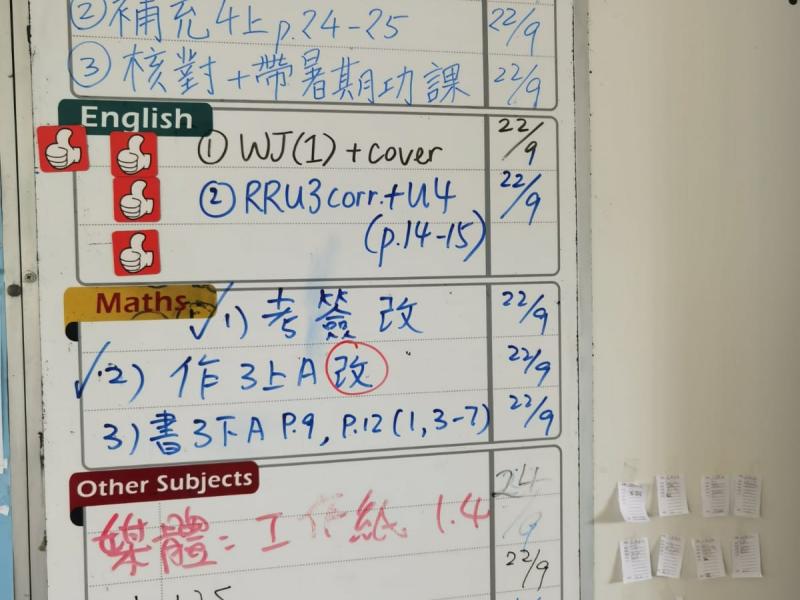 ② 補充4上 p.24-25 22/9
③ 核對+帶暑期功課 22/9
English
① WJ(1)+cover 22/9
② RRU3corr.+U4 22/9
(p.14-15)
Maths
✓1) 考簽改 22/9
✓2) 作3上A改 22/9
3) 書3下A P.9, P.12(1,3-7) 22/9
Other Subjects
媒體: 工作紙 1.4 24/9
22/9